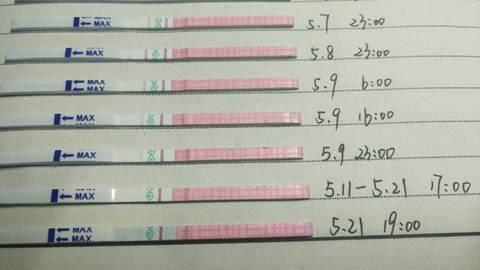 MAX 5.7 23:00
MAX 5.8 23:00
MAX 5.9 6:00
MAX 5.9 16:00
MAX 5.9 23:00
MAX 5.11-5.21 17:00
MAX 5.21 19:00